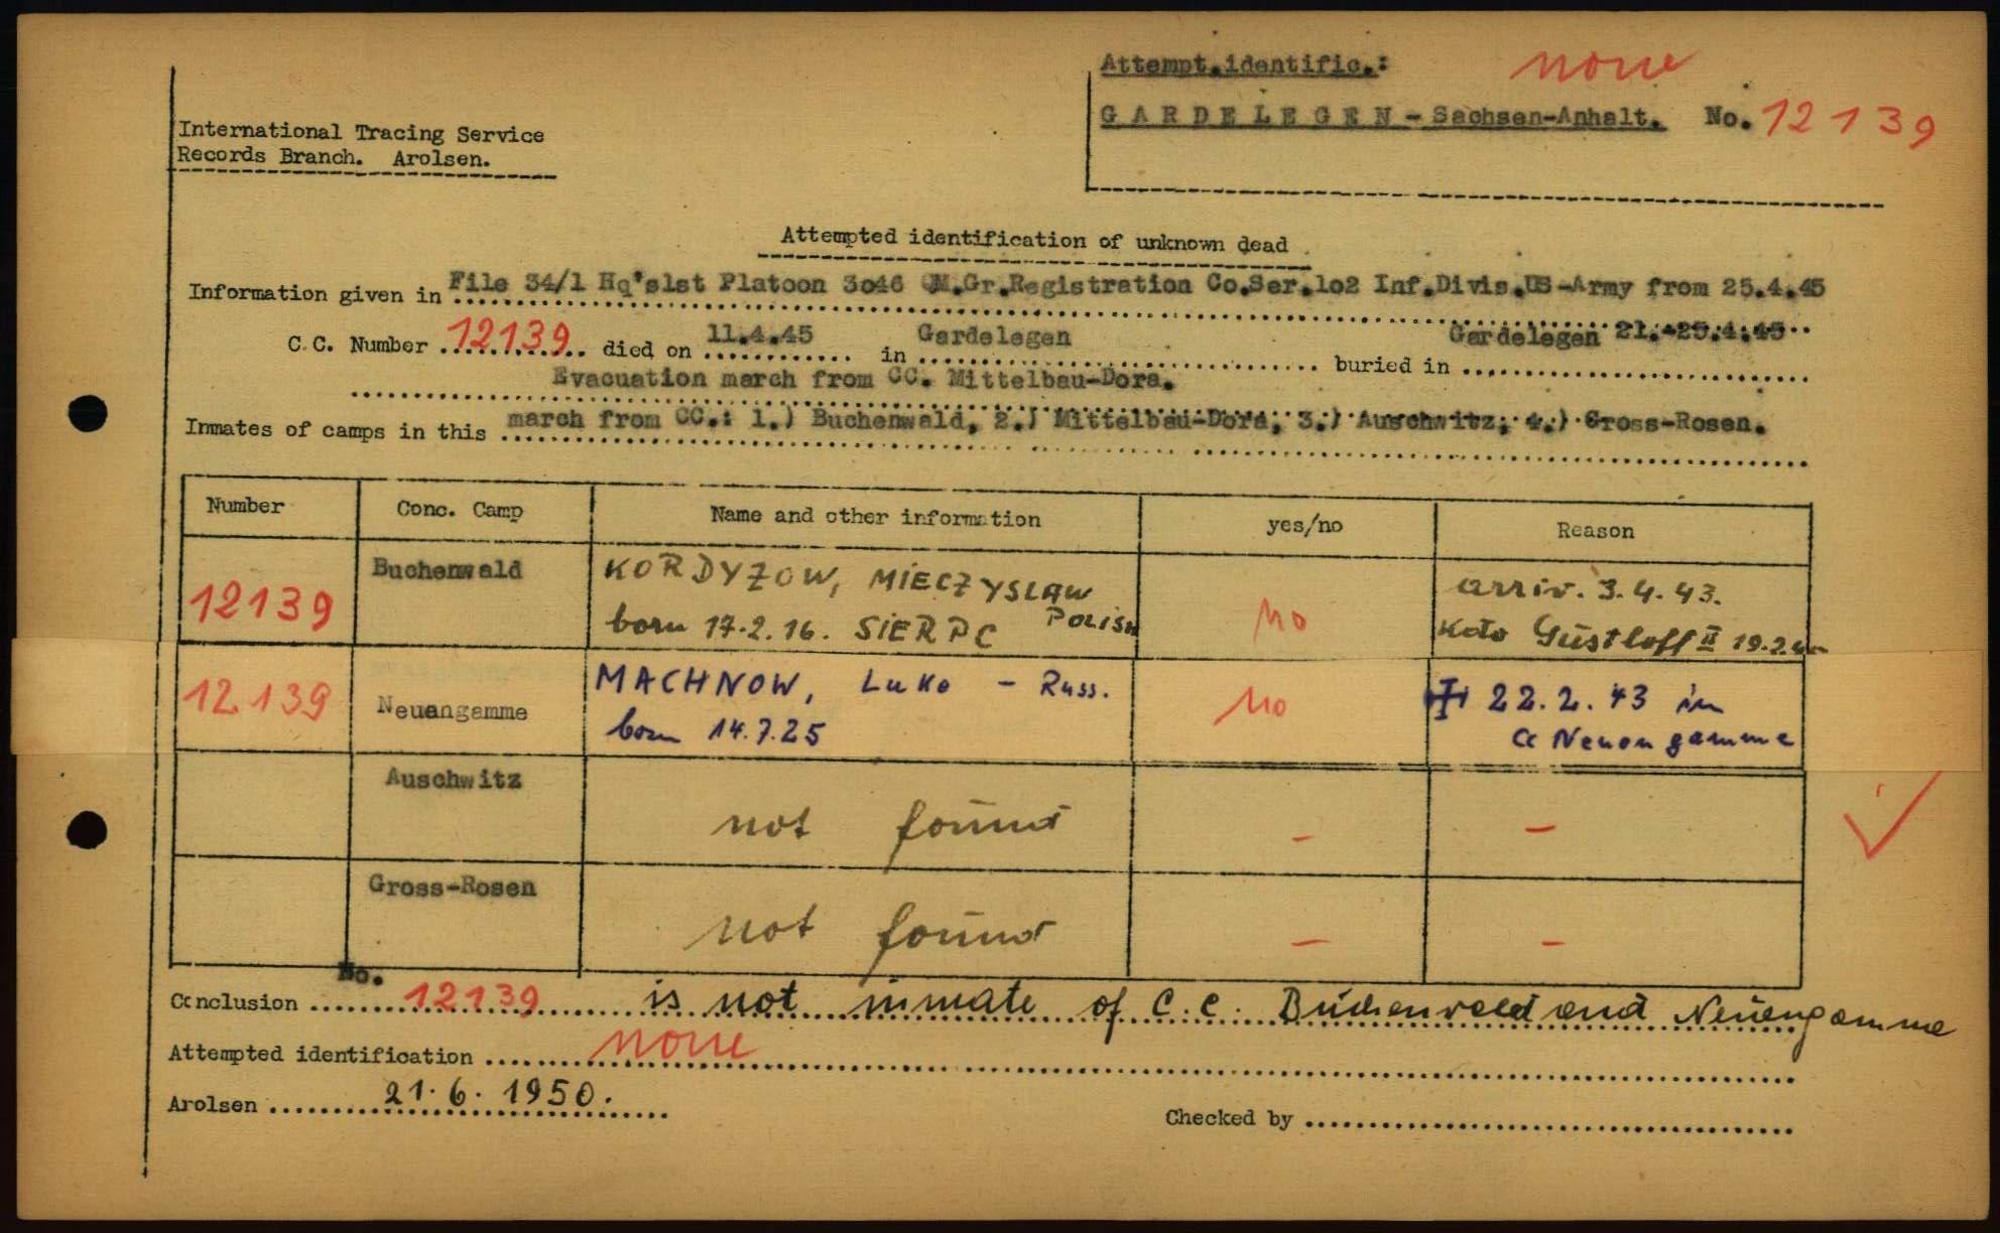 Attempt.identific.: none
GARDELEGEN - Sachsen-Anhalt. No. 12139
International Tracing Service
Records Branch. Arolsen.
Attempted identification of unknown dead
Information given in File 34/1 Hq's1st Platoon 3o46 QM.Gr.Registration Co.Ser.1o2 Inf.Divis.US-Army from 25.4.45
C.C. Number 12139 died on 11.4.45 in Gardelegen buried in Gardelegen 21.-25.4.45
Evacuation march from CC. Mittelbau-Dora.
Inmates of camps in this march from CC.: 1.) Buchenwald, 2.) Mittelbau-Dora, 3.) Auschwitz, 4.) Gross-Rosen.
Number Conc. Camp Name and other information yes/no Reason
12139 Buchenwald KORDYZOW, MIECZYSLAW born 17.2.16. SIERPC POLISH no arriv. 3.4.43. Kdo Gustloff II 19.2.
12139 Neuengamme MACHNOW, Luka - Russ. born 14.7.25 no 22.2.43 in CC Neuengamme
Auschwitz not found - -
Gross-Rosen not found - -
No.
Conclusion 12139 is not inmate of C.C. Buchenwald and Neuengamme
Attempted identification none
Arolsen 21.6.1950.
Checked by